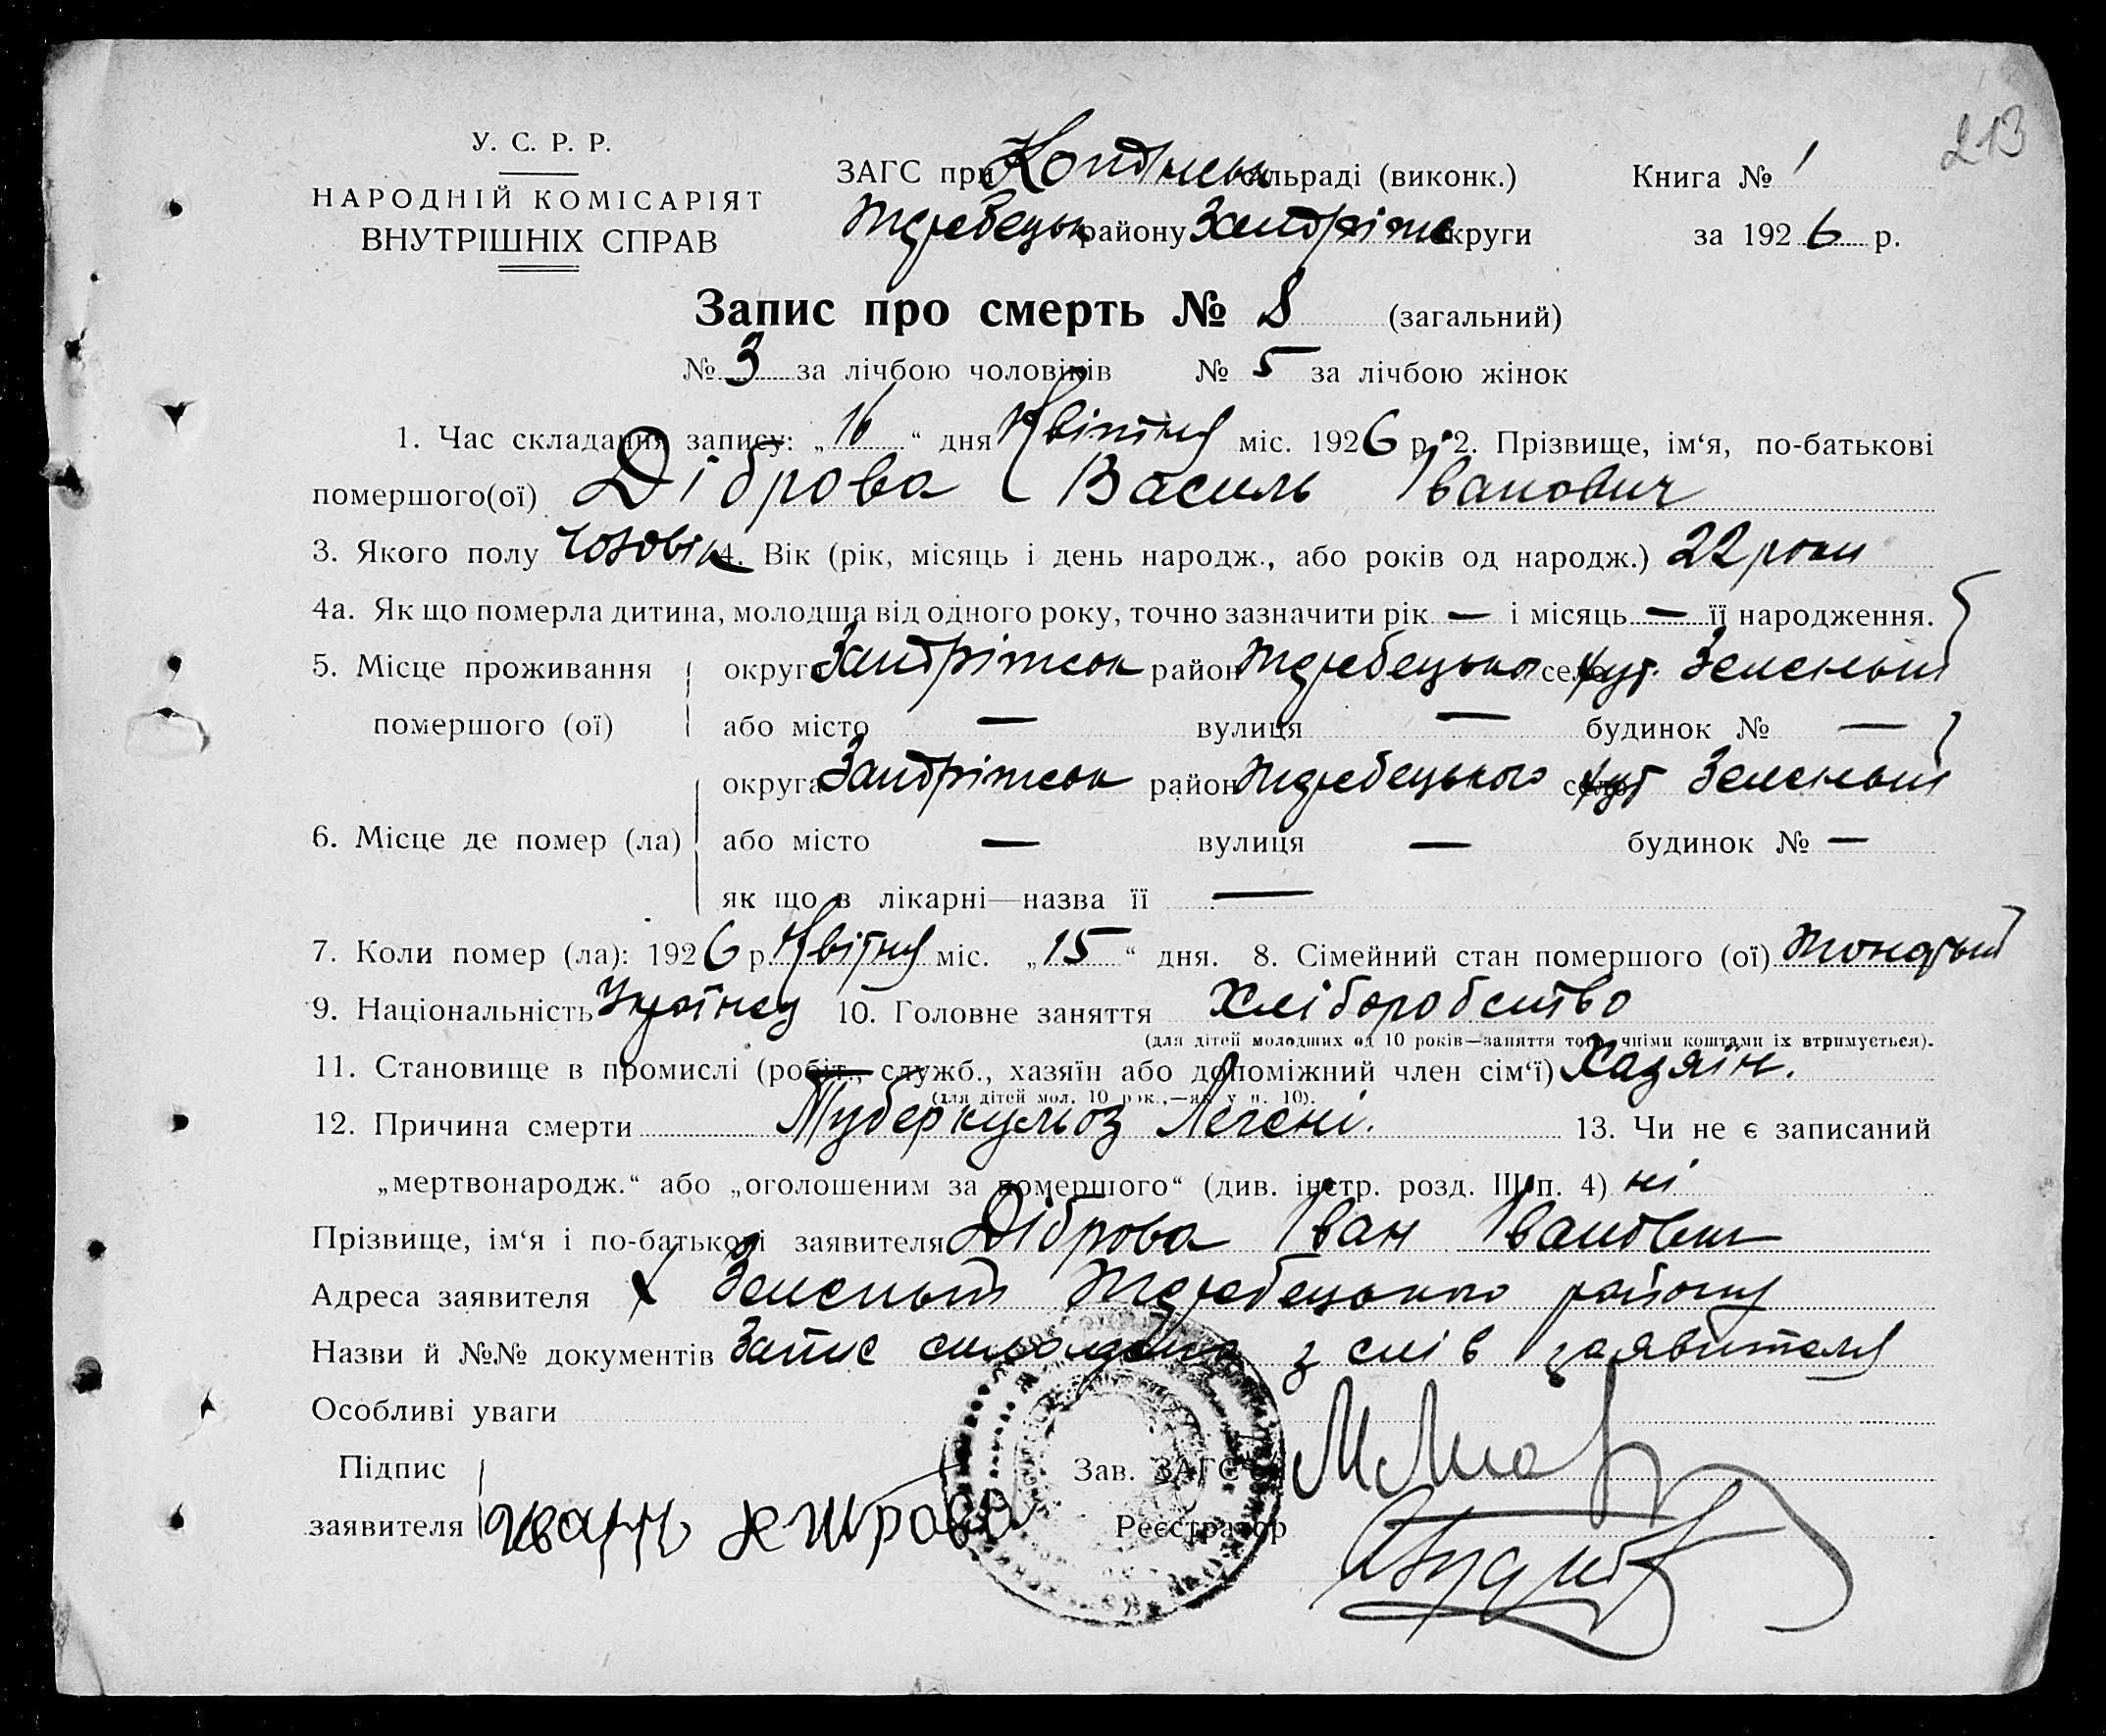 213
У. С. Р. Р.
НАРОДНІЙ КОМІСАРІЯТ
ВНУТРІШНІХ СПРАВ
ЗАГС при сільраді (виконк.) Книга № 1
району округи за 1926 р.
Запис про смерть № 8 (загальний)
№ 3 за лічбою чоловіків № 5 за лічбою жінок
1. Час складання запису: „16“ дня Квітня міс. 1926 р. 2. Прізвище, ім‘я, по-батькові
помершого(ої) Діброва Василь Іванович
3. Якого полу Чоловік 4. Вік (рік, місяць і день народж., або років од народж.) 22 роки
4а. Як що померла дитина, молодша від одного року, точно зазначити рік — і місяць — її народження.
5. Місце проживання округа район село хут. Зелений
помершого (ої) або місто — вулиця — будинок № —
округа район село хут Зелений
6. Місце де помер (ла) або місто — вулиця — будинок № —
як що в лікарні—назва її —
7. Коли помер (ла): 1926 р. Квітня міс. „15“ дня. 8. Сімейний стан помершого (ої)
9. Національність Українец 10. Головне заняття Хліборобство
(для дітей молодших од 10 років—заняття того, чиїми коштами їх втримується).
11. Становище в промислі (робіт., служб., хазяїн або допоміжний член сім‘ї) Хазяїн.
(для дітей мол. 10 рок.,—як у п. 10).
12. Причина смерти Туберкульоз Легені. 13. Чи не є записаний
„мертвонародж.“ або „оголошеним за помершого“ (див. інстр. розд. III п. 4) ні
Прізвище, ім‘я і по-батькові заявителя Діброва Іван Іванович
Адреса заявителя х Зелений району
Назви й №№ документів Запис з слів заявителя
Особливі уваги
Підпис Зав. ЗАГС‘ом
заявителя Реєстратор